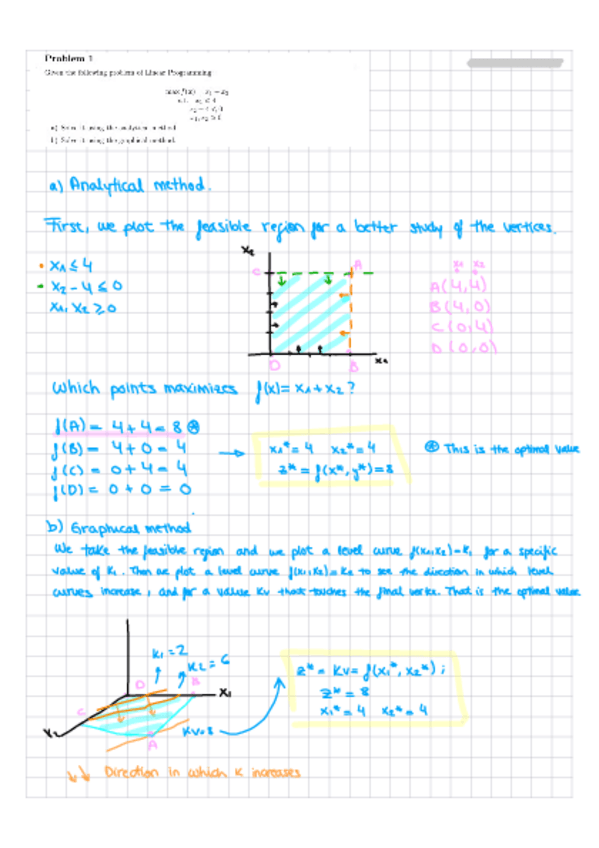 Problem 1
Given the following problem of Linear Programming
a) Solve it using the analytical method.
b) Solve it using the graphical method.
a) Analytical method.
First, we plot the feasible region for a better study of the vertices.
x1 ≤ 4
x2 - 4 ≤ 0
x1, x2 ≥ 0
x2
C
A
O
B
x1
x1 x2
A(4,4)
B(4,0)
C(0,4)
D(0,0)
Which points maximizes f(x)= x1+x2?
f(A) = 4+4 = 8 ⊛
f(B) = 4+0 = 4
f(C) = 0+4 = 4
f(D) = 0+0 = 0
→
x1* = 4 x2* = 4
z* = f(x*, y*) = 8
⊛ This is the optimal value
b) Graphical method
We take the feasible region and we plot a level curve f(x1,x2)=K1 for a specific
value of K1. Then we plot a level curve f(x1,x2)=K2 to see the direction in which level
curves increase, and for a value Kv that touches the final vertex. That is the optimal value
K1=2
K2=6
O
B
x1
C
x2
A
Kv=8
z* = Kv = f(x1*, x2*) ;
z* = 8
x1* = 4 x2* = 4
Direction in which K increases